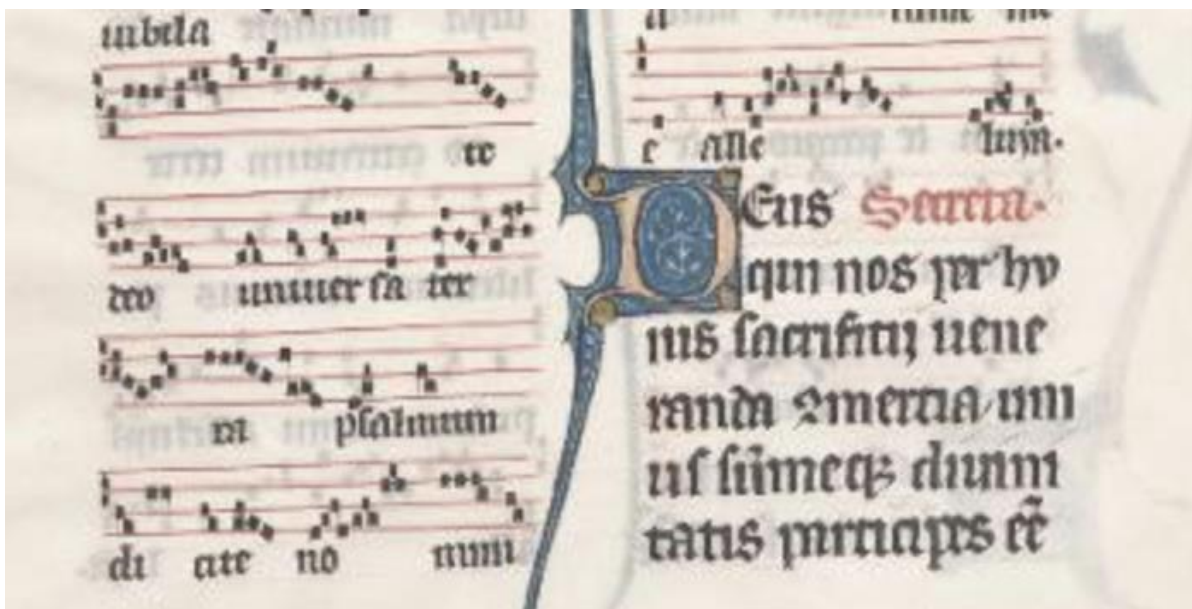 iubila
te
deo uniuersa ter
ra psalmum
di cite no mini
e alle luia.
DEus Secreta.
qui nos per hu
ius sacrificij uene
randa 9mercia uni
us sūmeqꝫ diuini
tatis participes eē